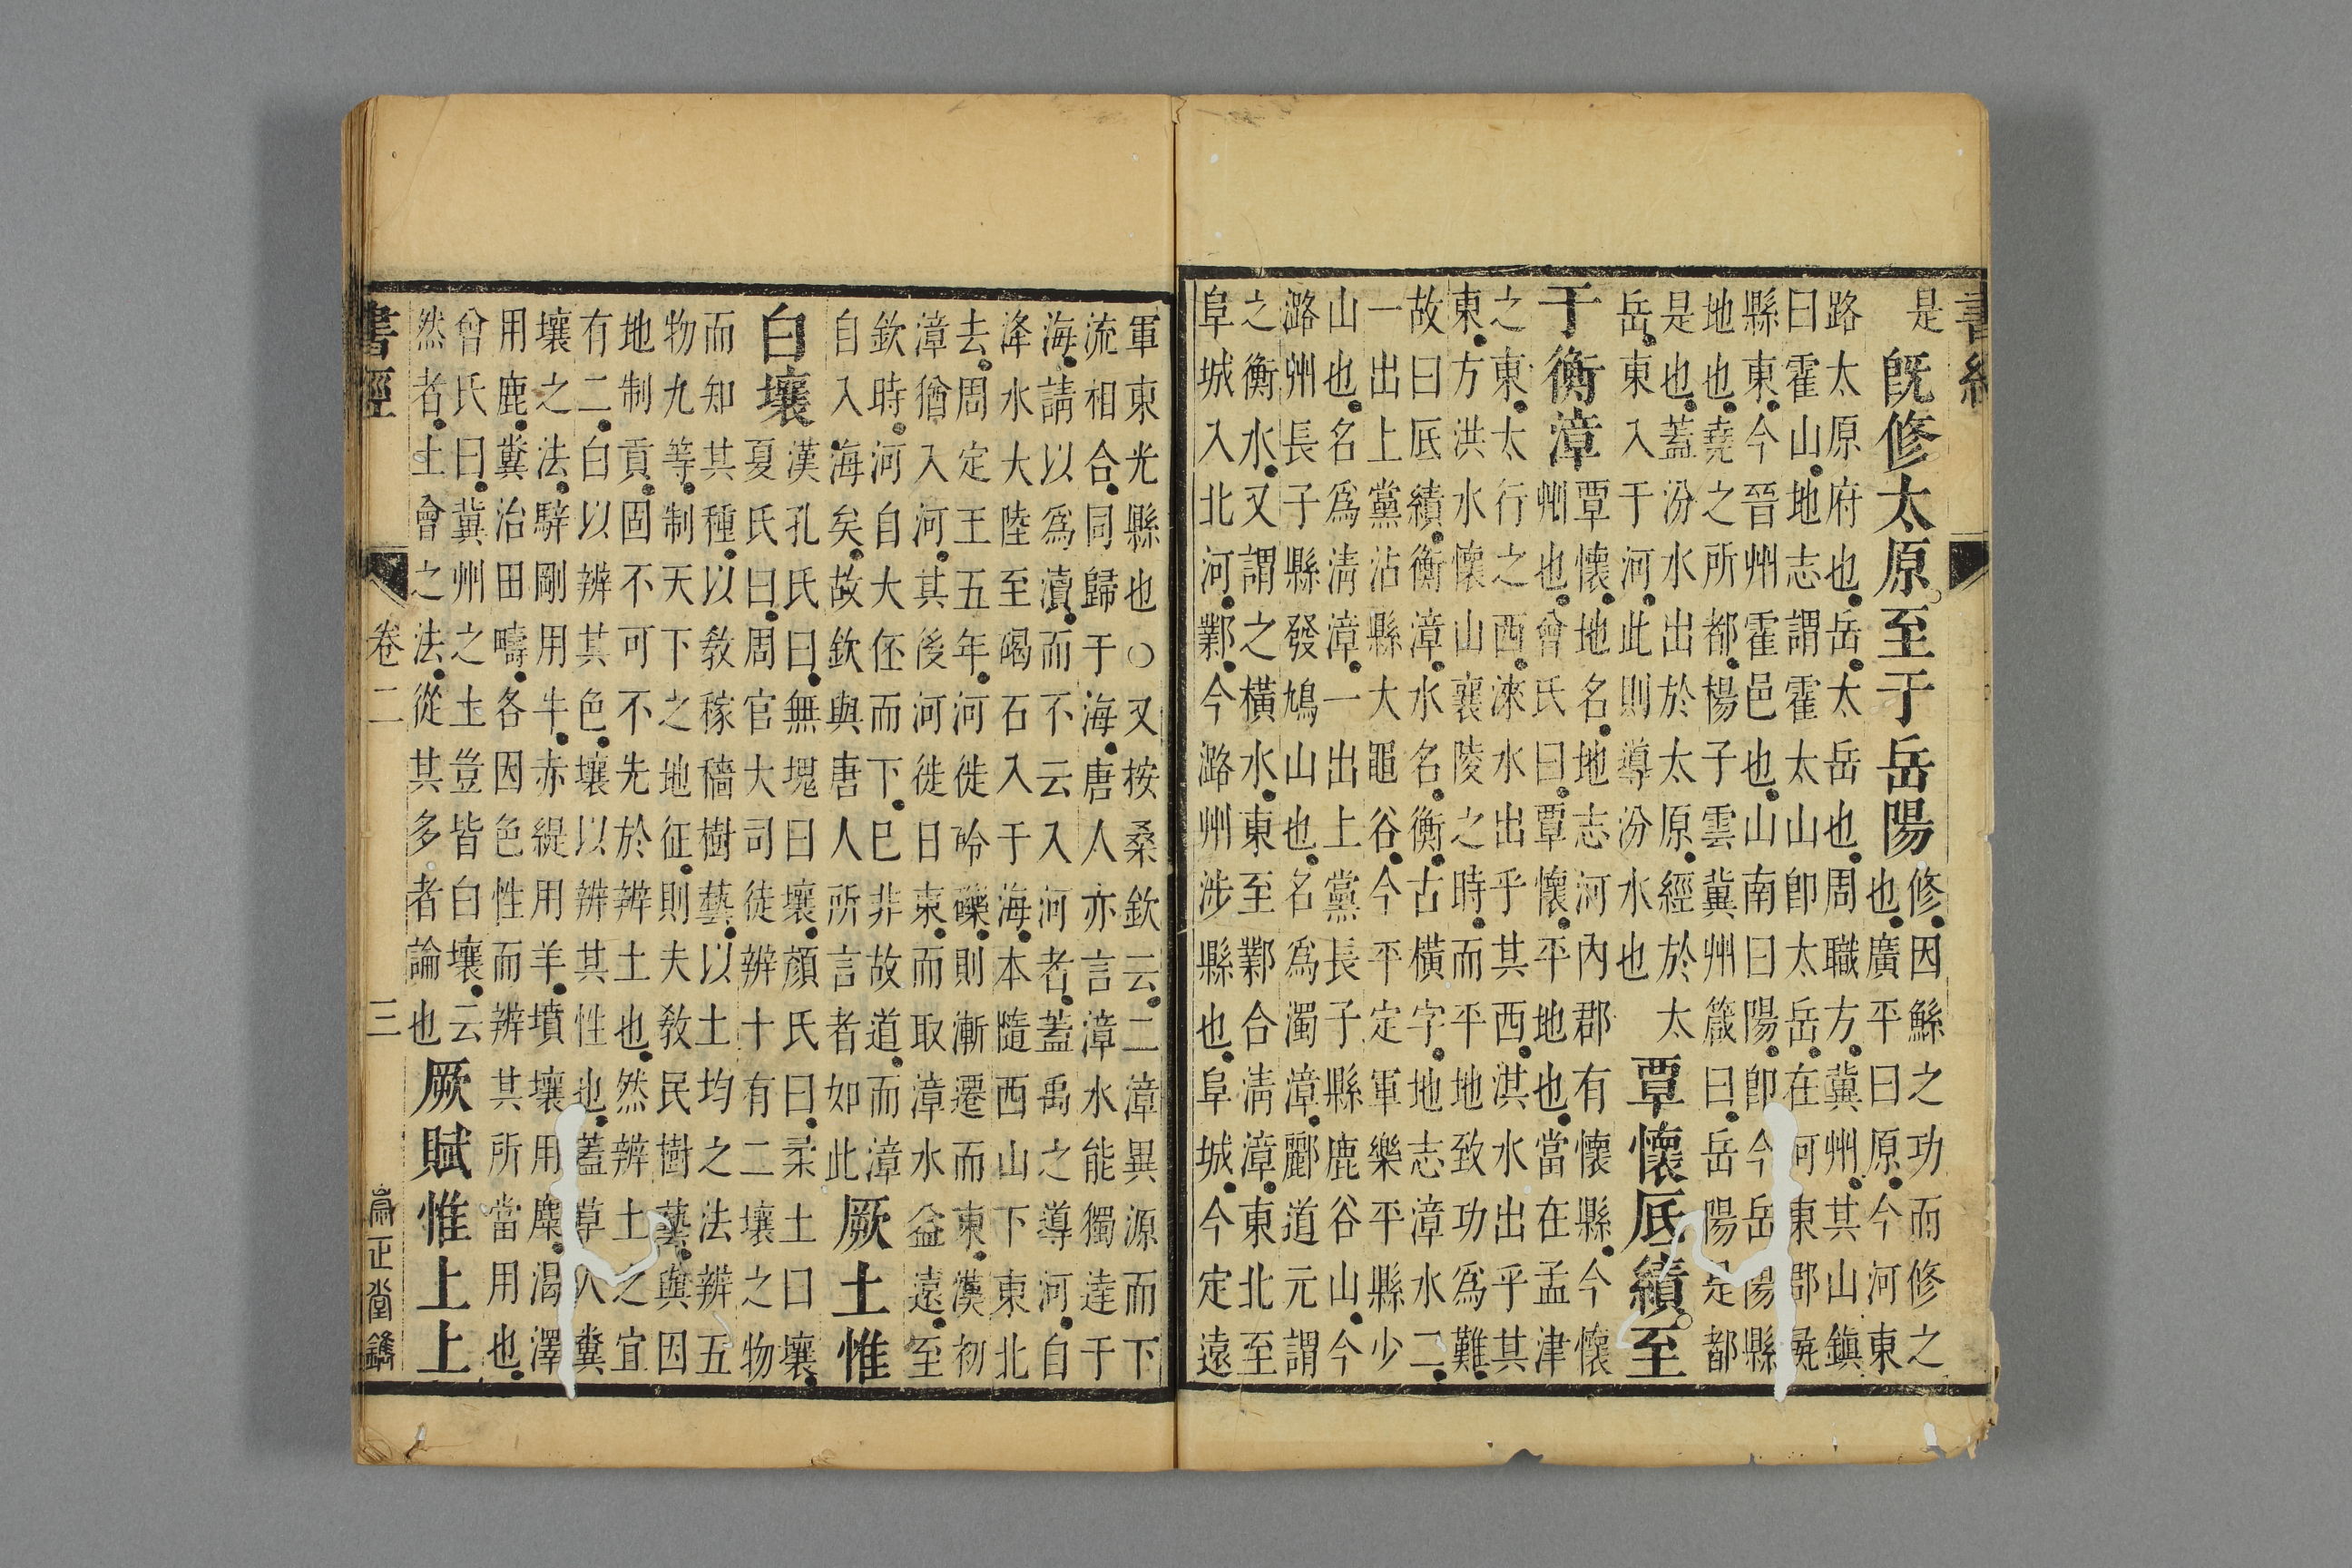 書經
是
旣修太原至于岳陽
修因鯀之功而修之
也廣平曰原今河東
路太原府也岳太岳也周職方冀州其山鎮
曰霍山地志謂霍太山即太岳在河東郡彘
縣東今晉州霍邑也山南曰陽即今岳陽縣
地也堯之所都楊子雲冀州箴曰岳陽是都
是也蓋汾水出於太原經於太
岳東入于河此則導汾水也
覃懷厎績至
于衡漳
覃懷地名地志河內郡有懷縣今懷
州也曾氏曰覃懷平地也當在孟津
之東太行之西淶水出乎其西淇水出乎其
東方洪水懷山襄陵之時而平地致功爲難
故曰厎績衡漳水名衡古橫字地志漳水二
一出上黨沾縣大黽谷今平定軍樂平縣少
山也名爲淸漳一出上黨長子縣鹿谷山今
潞州長子縣發鳩山也名爲濁漳酈道元謂
之衡水又謂之橫水東至鄴合淸漳東北至
阜城入北河鄴今潞州涉縣也阜城今定遠
軍東光縣也○又按桑欽云二漳異源而下
流相合同歸于海唐人亦言漳水能獨達于
海請以爲瀆而不云入河者蓋禹之導河自
洚水大陸至碣石入于海本隨西山下東北
去周定王五年河徙砱礫則漸遷而東漢初
漳猶入河其後河徙日東而取漳水益遠至
欽時河自大伾而下已非故道而漳
自入海矣故欽與唐人所言者如此
厥土惟
白壤
漢孔氏曰無塊曰壤顏氏曰柔土曰壤
夏氏曰周官大司徒辨十有二壤之物
而知其種以敎稼穡樹藝以土均之法辨五
物九等制天下之地征則夫敎民樹藝與因
地制貢固不可不先於辨土也然辨土之宜
有二白以辨其色壤以辨其性也蓋草人糞
壤之法騂剛用牛赤緹用羊墳壤用麋渴澤
用鹿糞治田疇各因色性而辨其所當用也
曾氏曰冀州之土豈皆白壤云
然者土會之法從其多者論也
厥賦惟上上
書經 卷二 三 正堂鐫